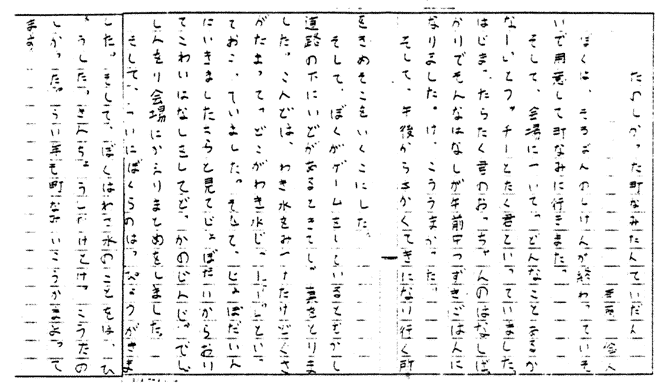 たのしかった町なみたんていだん
ぼくは、そろばんのしけんが終わっていそ
いで用意して町なみに行きました。
そして、会場について、どんなことあるか
なー」とフッチーとたく君といっていました。
はじまったらたく君のおっちゃんのはなしば
かりでそんなはなしが午前中つずきごはんに
なりました。け、こううまかった。
そして、午後からさかくてきになり行く所
をきめそこをいくことにした。
そして、ぼくがゲームをしているとむかし
道路の下にいどがあるときてし。真をとりま
した。こんどは、わき水をみつけたけどくさ
がたまってどこがわき水じゃーーといっ
ておこっていました。そして、じょぼだいへん
にいきましたらと見てじょぼだいからおり
てこわいはなしをしてど、かのじんじゃでし
しんをり会場にかえりまとめをしました。
そして、ついにぼくらのはっぴょうがきま
した。そして、ぼくはわき水のことをはっぴ
ょうした。きんちょうしたけどけっこうたの
しかった。らい年も町なみいこうかまよって
ます。